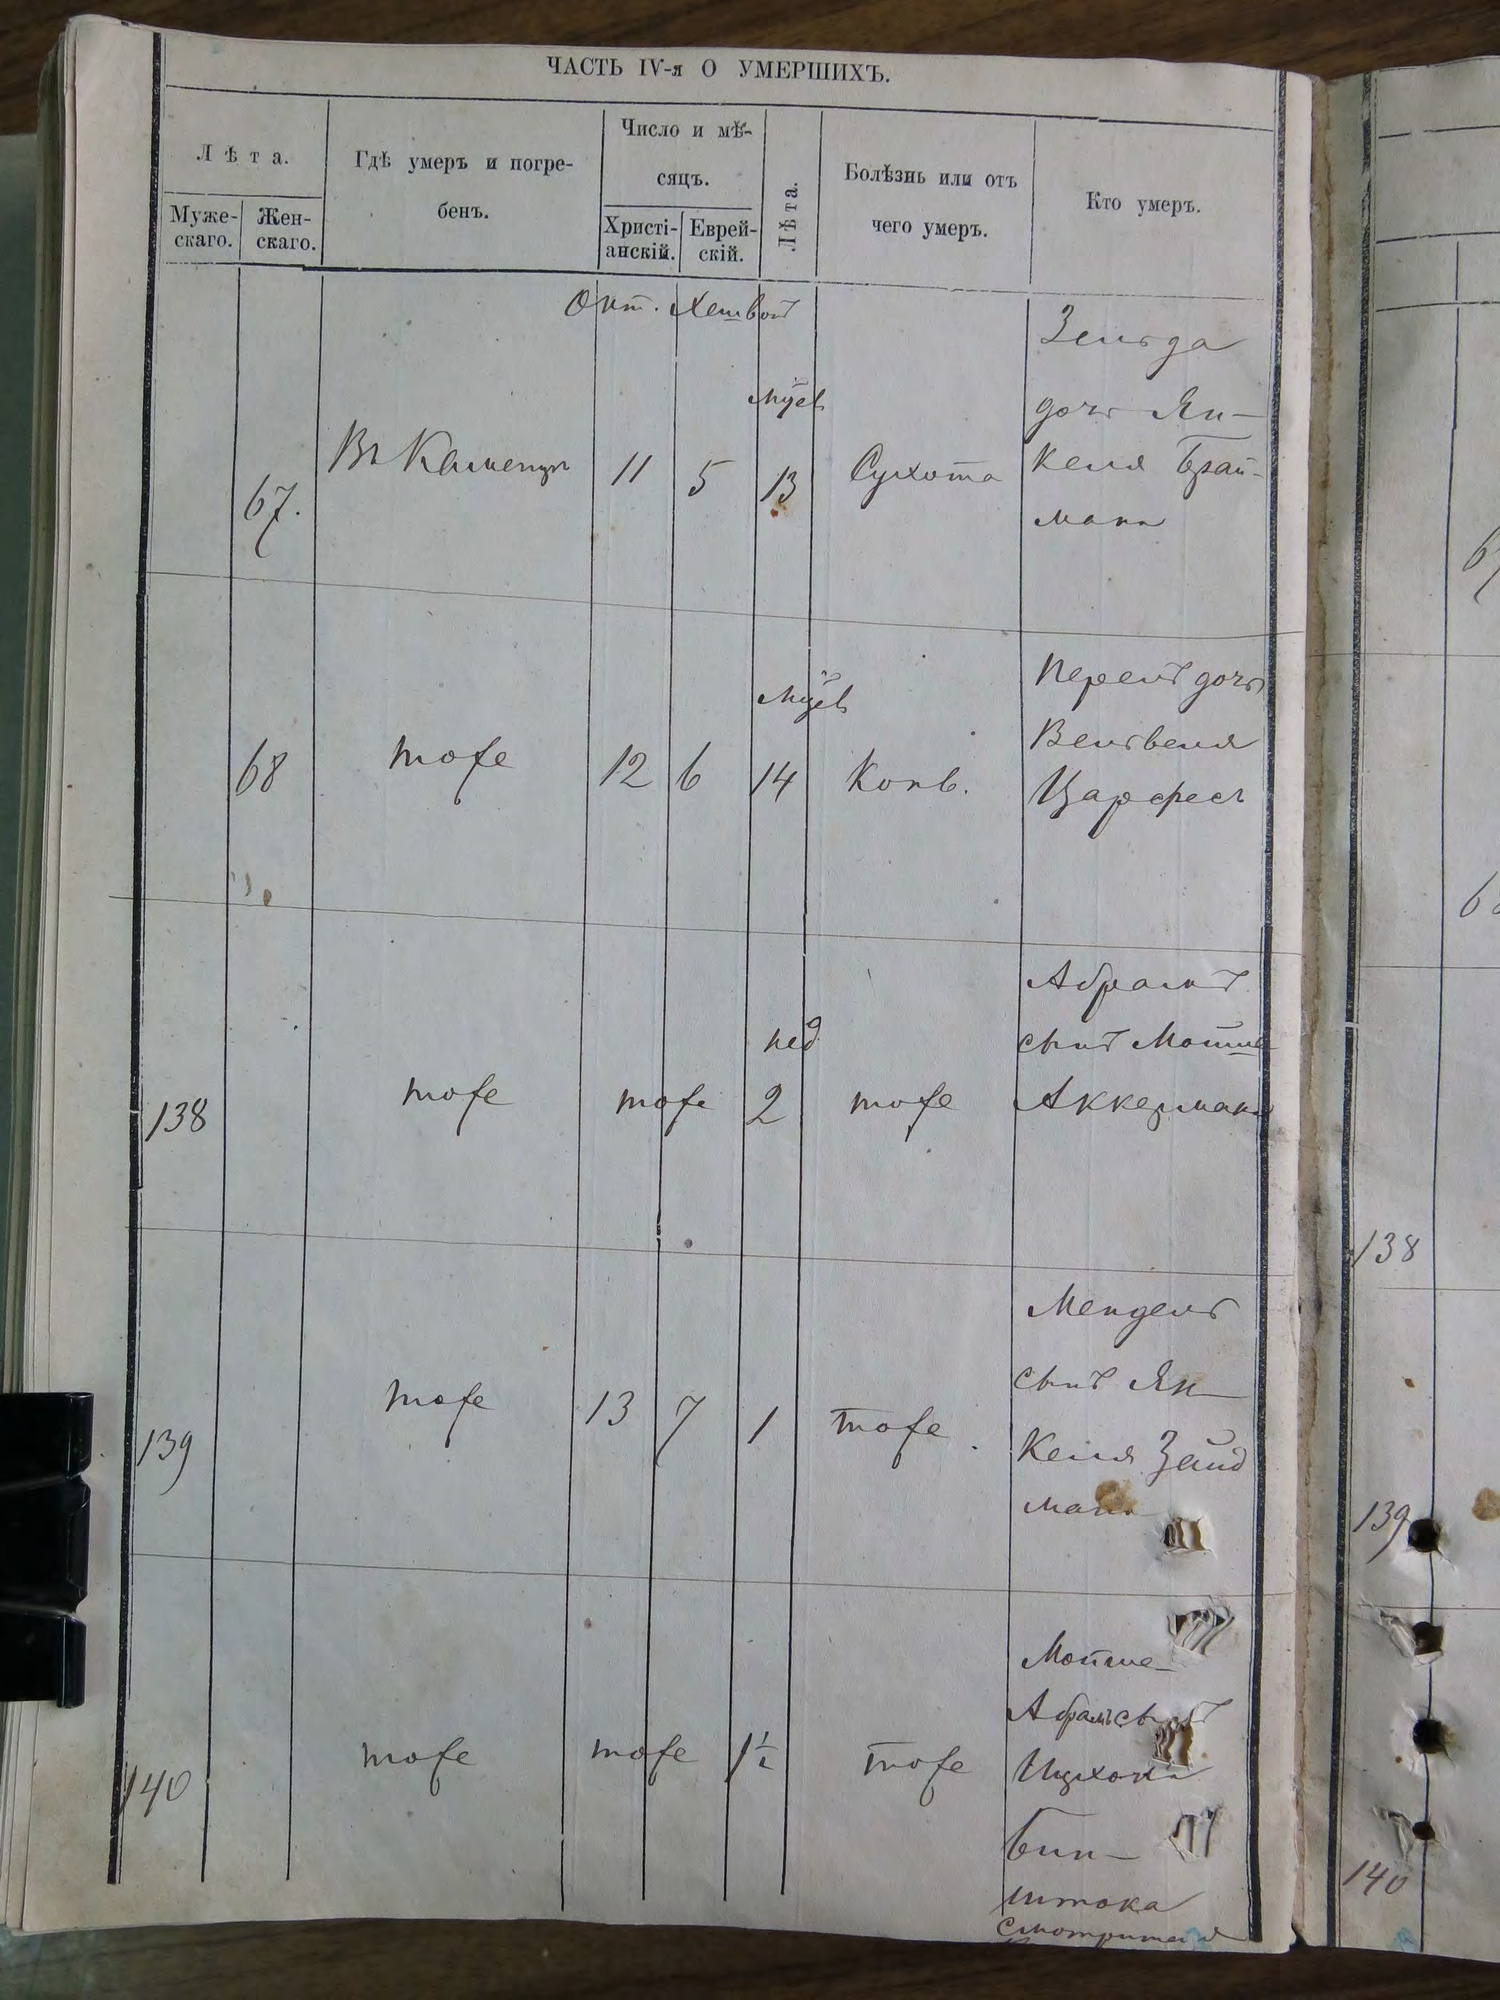 ЧАСТЬ IV-я О УМЕРШИХЪ.
Лѣта.
Муже-
скаго.
Жен-
скаго.
Гдѣ умеръ и погре-
бенъ.
Число и мѣ-
сяцъ.
Христі-
анскій.
Еврей-
скій.
Лѣта.
Болѣзнь или отъ
чего умеръ.
Кто умеръ.
Окт. Хешвон
67.
Въ Каменцѣ
11
5
13
Сухота
Зельда
дочь Ян-
келя Брай-
мана
68
тоже
12
6
14
Конв.
Перелъ дочь
Вельвеля
Царфесъ
138
тоже
тоже
нед
2
тоже
Абрамъ
сынъ Мошше
Аккермана
139
тоже
13
7
1
тоже
Мендель
сынъ Ян-
келя Зайд
мана
140
тоже
тоже
1½
тоже
Мошше-
Абрамъ сынъ
Ицхока
Бин-
штока
Смотрителя
67
68
138
139
140